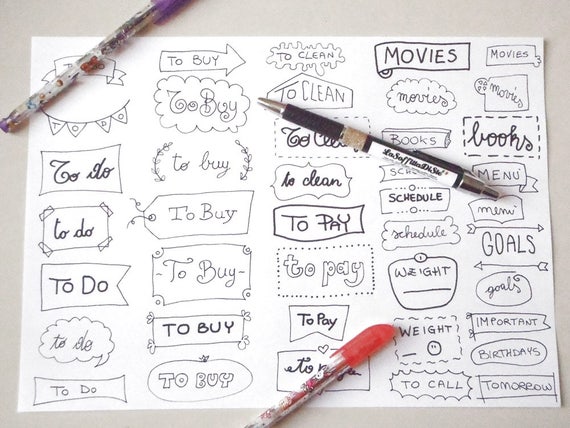 TO DO
To do
to do
TO DO
to do
TO DO
TO BUY
To Buy
to buy
To Buy
-To Buy-
TO BUY
TO BUY
TO CLEAN
TO CLEAN
To
to clean
TO PAY
to pay
To Pay
to
MOVIES
movies
BOOKS
SCHEDULE
schedule
WEIGHT
WEIGHT
TO CALL
MOVIES
movies
books
MENU
menu
GOALS
goals
IMPORTANT
BIRTHDAYS
TOMORROW
LaSoffittaDiSte